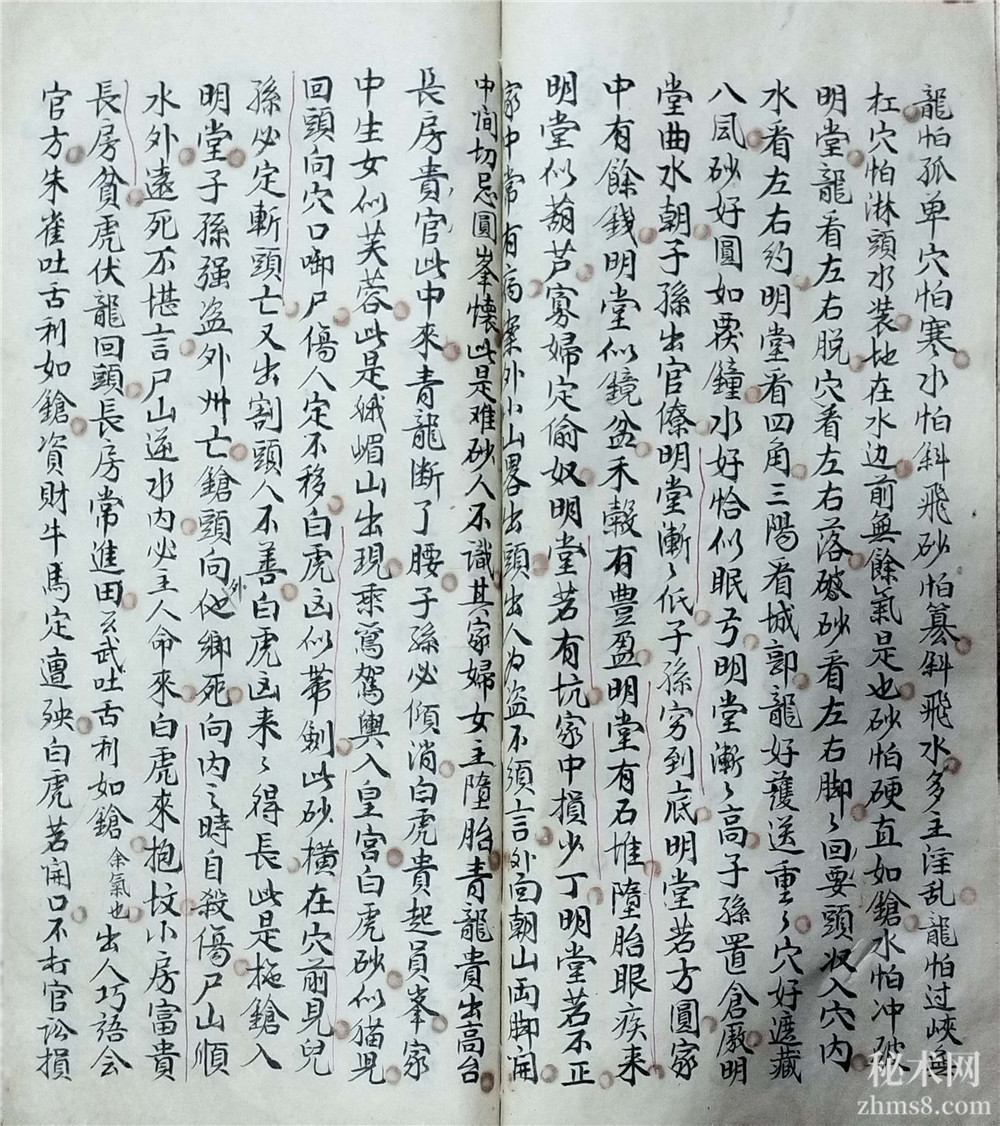 龍怕孤单穴怕寒水怕斜飛砂怕纂斜飛水多主淫乱龍怕过峽無
杠穴怕淋頭水装地在水边前無餘氣是也砂怕硬直如鎗水怕冲破
明堂龍看左右脱穴看左右落破砂看左右脚〻回要頭收入穴内
水看左右约明堂看四角三陽看城郭龍好護送重〻穴好遮藏
八凨砂好圓如覆鐘水好恰似眠弓明堂漸〻高子孫置倉廒明
堂曲水朝子孫出官僚明堂漸〻低子孫穷到底明堂若方圓家
中有餘錢明堂似鏡盆禾穀有豊盈明堂有石堆墮胎眼疾来
明堂似葫芦寡婦定偷奴明堂若有坑家中損少丁明堂若不正
家中常有病案外小山畧出頭出人为盗不須言外向朝山両脚開
中间切忌圓峯懐此是难砂人不識其家婦女主墮胎青龍貴出高台
長房貴官此中來青龍断了腰子孫必傾消白虎貴起員峯家
中生女似芙蓉此是峨嵋山出現乘鸞駕輿入皇宫白虎砂似猫児
回頭向穴口啣尸傷人定不移白虎凶似帯劍此砂横在穴前見兒
孫必定斬頭亡又出割頭人不善白虎凶来〻得長此是拖鎗入
明堂子孫强盗外州亡鎗頭向外他鄉死向内之時自殺傷尸山順
水外遠死不堪言尸山逆水内必主人命來白虎來抱坟小房富貴
長房貧虎伏龍回頭長房常進田玄武吐舌利如鎗余氣也出人巧語会
官方朱雀吐舌利如鎗資財牛馬定遭殃白虎若開口不打官訟損
秘术网
zhms8.com